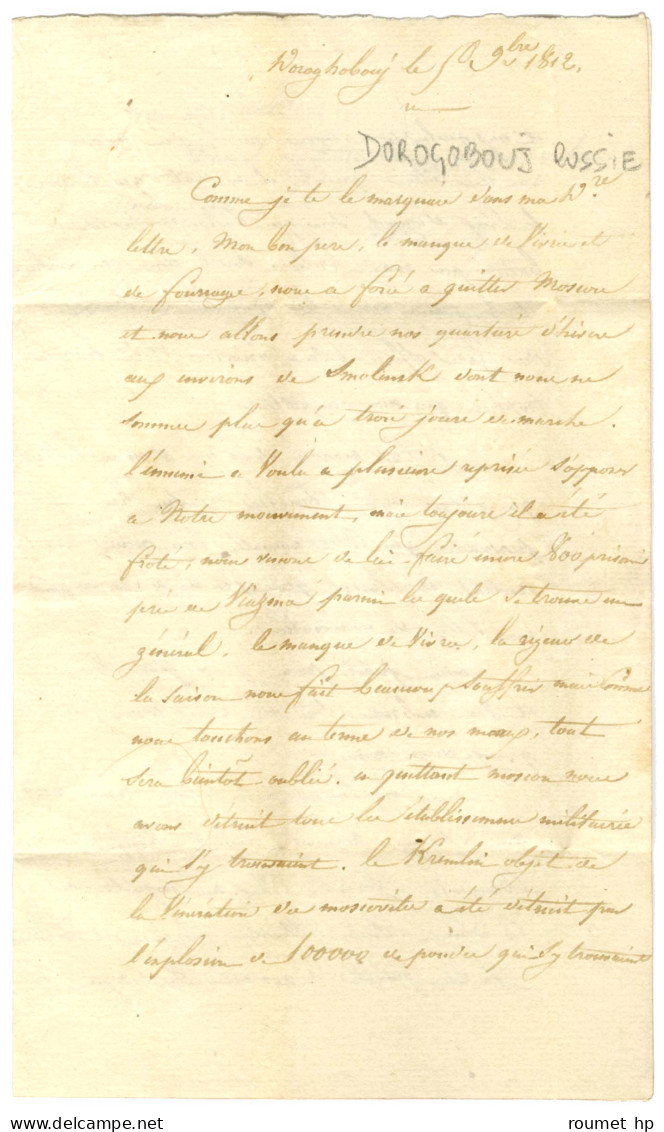 Doroghobouj le 5 de 9bre 1812.
DOROGOBOUJ RUSSIE
Comme je te le marquais dans ma dre
lettre, Mon bon pere, le manque de Vivre et
de fourrage, nous a forcé a quitter Moscou
et nous allons prendre nos quartiers d'hiver
aux environs de Smolensk dont nous ne
sommes plus qu'a trois jours de marche.
l'ennemi a Voulu a plusieurs reprises s'opposer
a Notre mouvement, mais toujours il a été
froté, nous venons de lui faire encore 800 prison
près de Viazma parmi les quels se trouve un
général. le manque de Vivre, la rigeur de
la saison nous fait beaucoup souffrir mais Comme
nous touchons au terme de nos maux, tout
sera bientôt oublié. en quittant moscou nous
avons détruit tous les établissemens militaires
qui s'y trouvaient. le Kremlin objet de
la Vénération des moscovites a été détruit par
l'explosion de 100000 de poudre qui s'y trouvaient
© roumet hp